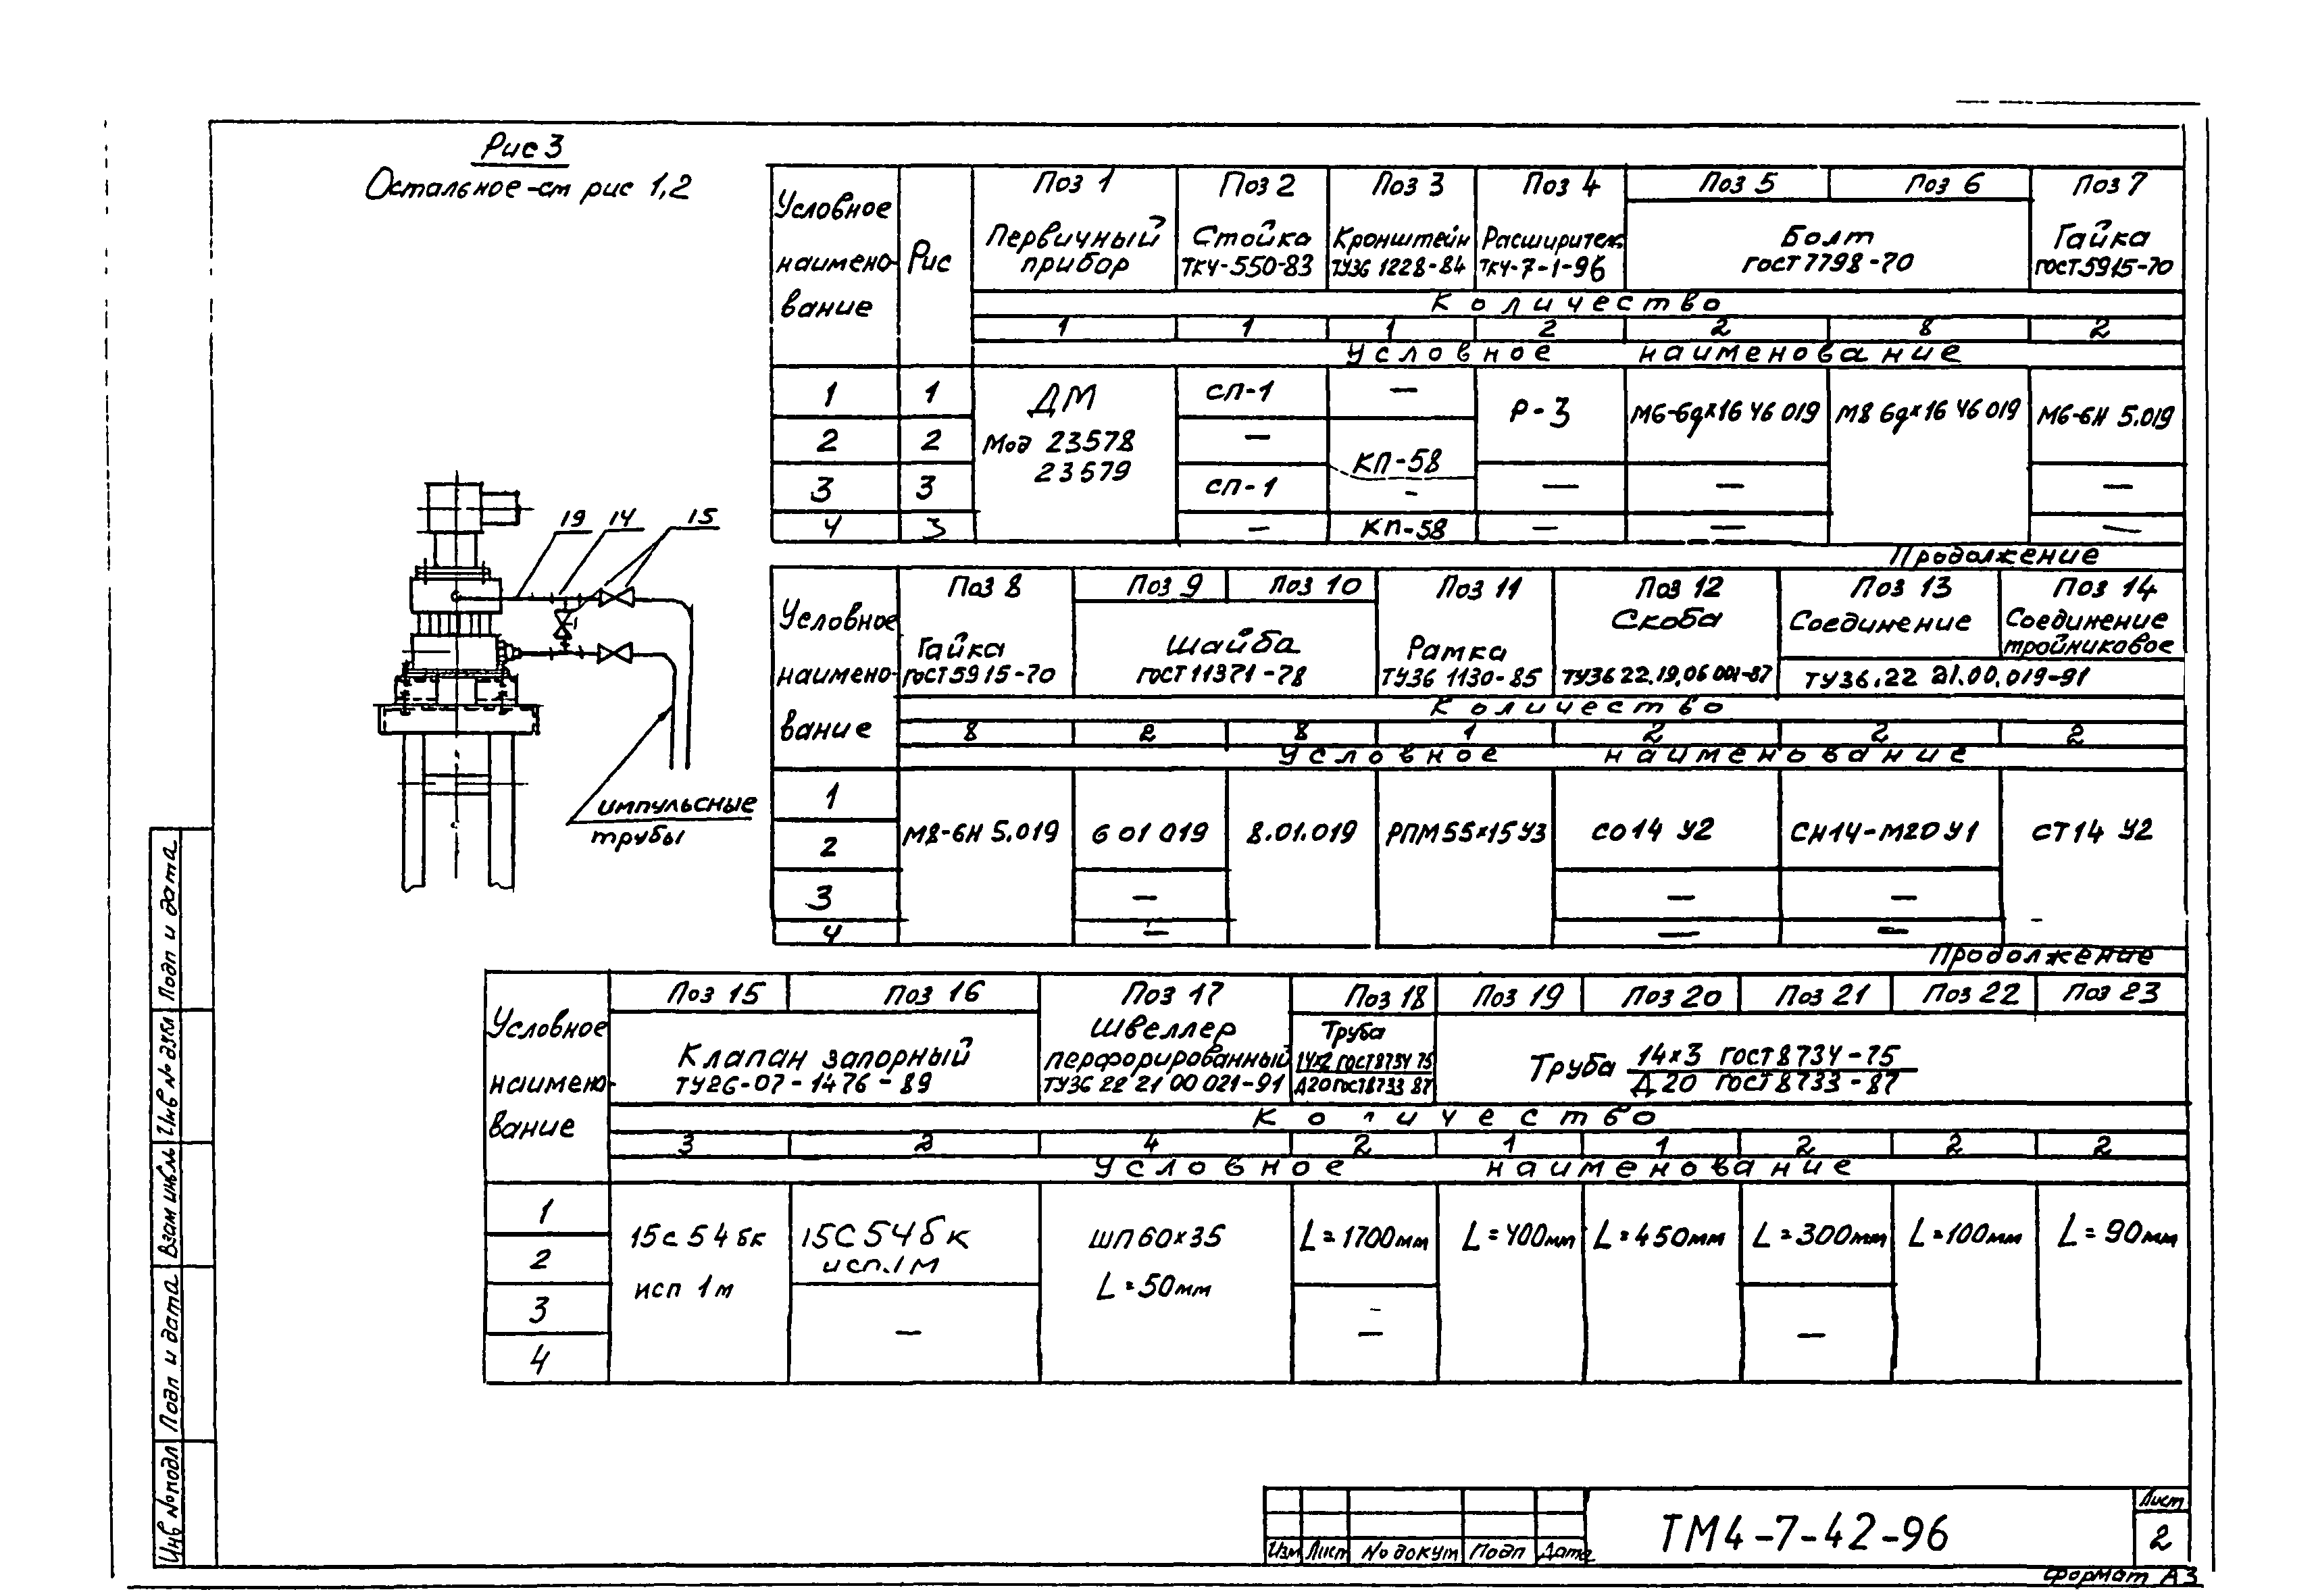 Рис 3
Остальное - см рис 1,2
19 14 15
импульсные
трубы
Условное наименование Рис Поз 1 Поз 2 Поз 3 Поз 4 Поз 5 Поз 6 Поз 7
Первичный прибор Стойка ТК4-550-83 Кронштейн ТУ36 1228-84 Расширитель ТК4-7-1-96 Болт ГОСТ 7798-70 Гайка ГОСТ 5915-70
Количество
1 1 1 2 2 8 2
Условное наименование
1 1 ДМ Мод 23578 23579 СП-1 — Р-3 М6-6gx16 46 019 М8 6gx16 46 019 М6-6Н 5.019
2 2 — КП-58
3 3 СП-1 - — — —
4 3 — КП-58 — — —
Продолжение
Условное наименование Поз 8 Поз 9 Поз 10 Поз 11 Поз 12 Поз 13 Поз 14
Гайка ГОСТ 5915-70 Шайба ГОСТ 11371-78 Рамка ТУ36 1130-85 Скоба ТУ36 22.19.06 001-87 Соединение Соединение тройниковое ТУ36.22 21.00.019-91
Количество
8 2 8 1 2 2 2
Условное наименование
1
2 М8-6Н 5.019 6 01 019 8.01.019 РПМ 55x15 У3 СО14 У2 СН14-М20 У1 СТ14 У2
3 — — —
4 — — —
Продолжение
Условное наименование Поз 15 Поз 16 Поз 17 Поз 18 Поз 19 Поз 20 Поз 21 Поз 22 Поз 23
Клапан запорный ТУ26-07-1476-89 Швеллер перфорированный ТУ36 22 21 00 021-91 Труба 14x2 ГОСТ 8734 75 Д20 ГОСТ 8733 87 Труба 14x3 ГОСТ 8734-75 Д 20 ГОСТ 8733-87
Количество
3 2 4 2 1 1 2 2 2
Условное наименование
1
2 15с 54 бк исп 1м 15С 54 бк исп.1м ШП 60x35 L=50мм L=1700мм L=400мм L=450мм L=300мм L=100мм L=90мм
3 — - —
4 —
Инв № подл Подп и дата Взам инв № Инв № дубл Подп и дата
Изм Лист № докум Подп Дата
ТМ4-7-42-96
Лист
2
Формат А3